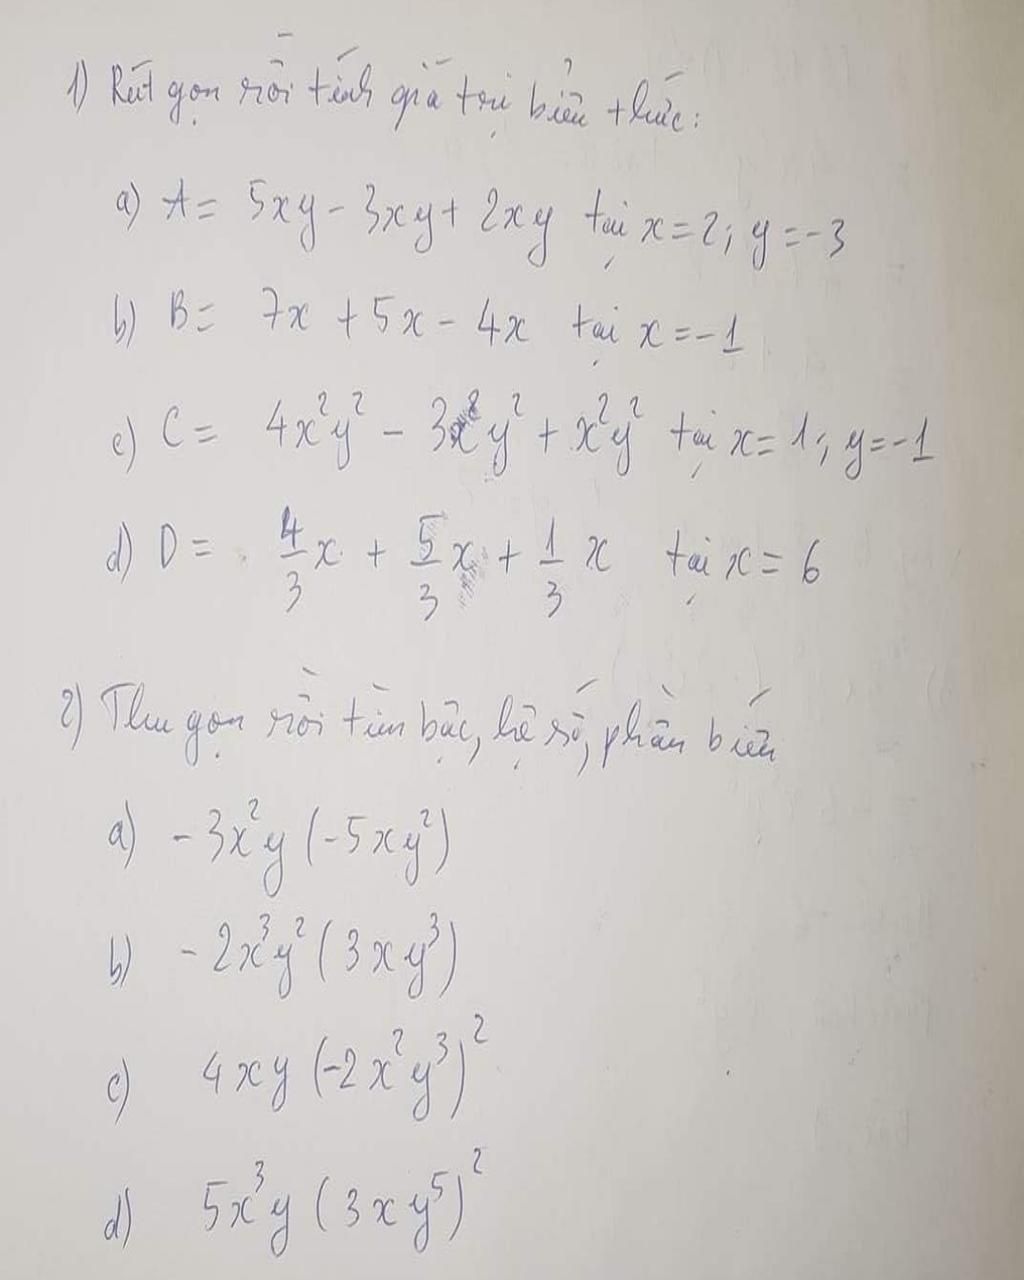 1) Rút gọn rồi tính giá trị biểu thức:
a) A = 5xy - 3xy + 2xy tại x = 2; y = -3
b) B = 7x + 5x - 4x tại x = -1
c) C = 4x²y² - 3x²y² + x²y² tại x = 1; y = -1
d) D = 4/3 x + 5/3 x + 1/3 x tại x = 6
2) Thu gọn rồi tìm bậc, hệ số, phần biến
a) -3x²y (-5xy²)
b) -2x³y² (3xy³)
c) 4xy (-2x²y³)²
d) 5x³y (3xy⁵)²